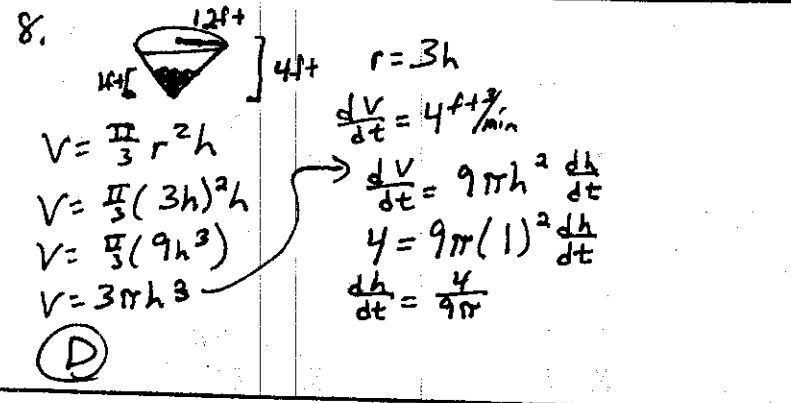 8.
12ft
1ft
4ft
V = π/3 r²h
V = π/3 (3h)²h
V = π/3 (9h³)
V = 3πh³
D
r = 3h
dV/dt = 4 ft³/min
dV/dt = 9πh² dh/dt
4 = 9π(1)² dh/dt
dh/dt = 4/9π